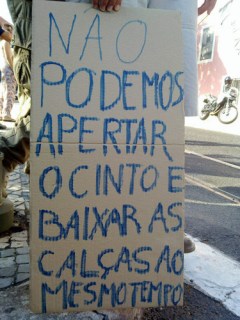 NAO
PODEMOS
APERTAR
O CINTO E
BAIXAR AS
CALÇAS AO
MESMO TEMPO